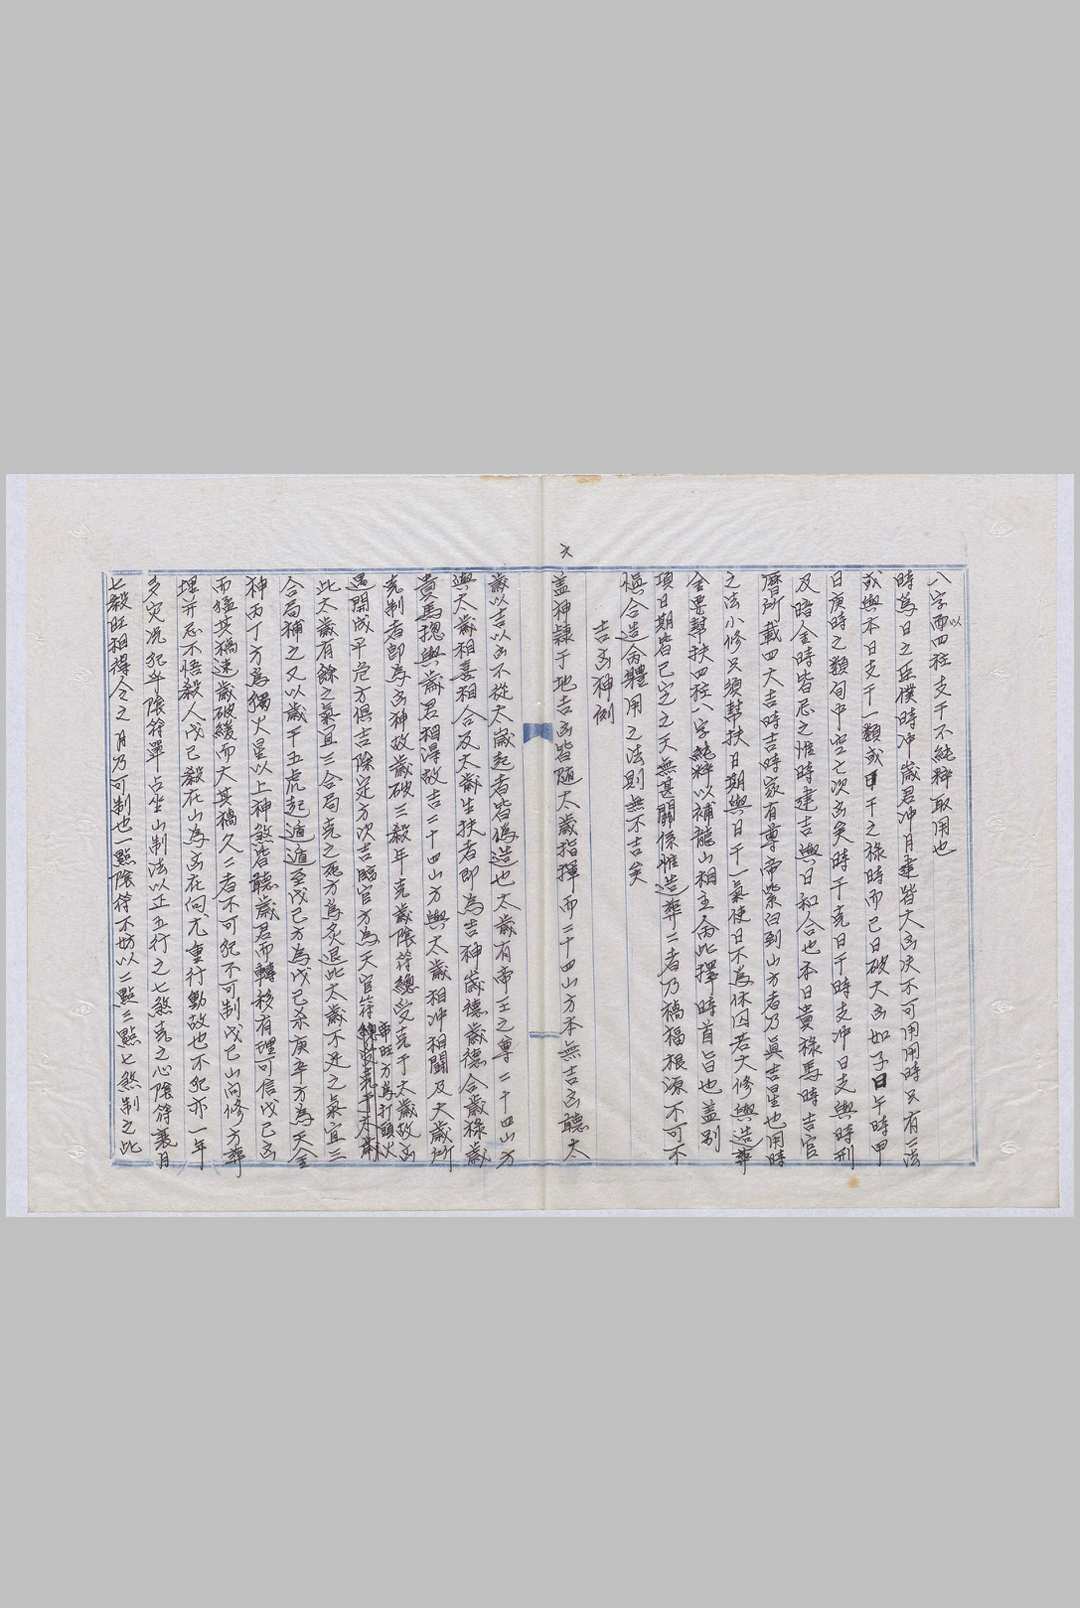 八字而以四柱支干不純粹取用也
時爲日之臣僕時冲歲君冲月建皆大凶决不可用用時只有三法
或與本日支干一類或日干之祿時而已日破大凶如子日午時甲
日庚時之類旬中空亡次凶矣時干克日干時支冲日支與時刑
及路空時皆忌之惟時建吉與日和合也本日貴祿馬時吉官
曆所載四大吉時吉時家有尊帝紫白到山方者乃眞吉星也用時
之法小修只須幫扶日期與日干一氣使日不為休囚若大修與造葬
全要幫扶四柱八字純粹以補龍山相主命此擇時首旨也蓋刻
項日期皆已定之天無甚關係惟造葬二者乃禍福根源不可不
愼合造命體用之法則無不吉矣
吉凶神例
蓋神隸于地吉凶皆随太歲指揮而二十四山方本無吉凶聽太
歲以吉以凶不從太歲起者皆偽造也太歲有帝王之尊二十四山方
與太歲相喜相合及太歲生扶者即為吉神歲德歲德合歲祿歲
貴馬揔與歲君相得故吉二十四山方與太歲相冲相鬪及太歲所
克制者即為凶神故歲破三殺年克歲陰符總受克于太歲故凶
遇開成平危方俱吉除定方次吉臨官方為天官符帝旺方為打頭火
此太歲有餘之氣宜三合局克之死方為炙退此太歲不足之氣宜三
合局補之又以歲干五虎起遁遁至戊己方為戊己杀庚辛方為天金
神丙丁方為獨火星以上神煞皆聽歲君而轉移有理可信戊己凶
而猛其禍速歲破緩而大其禍久二者不可犯不可制戊己山向修方葬
埋并忌不悟殺人戊己殺在山為凶在向尤重行動故也不犯亦一年
多灾况犯乎陰符單占坐山制法以正五行之七煞克之必陰符衰月
七殺旺相得令之月乃可制也一點陰符不妨以二點三點七煞制之此